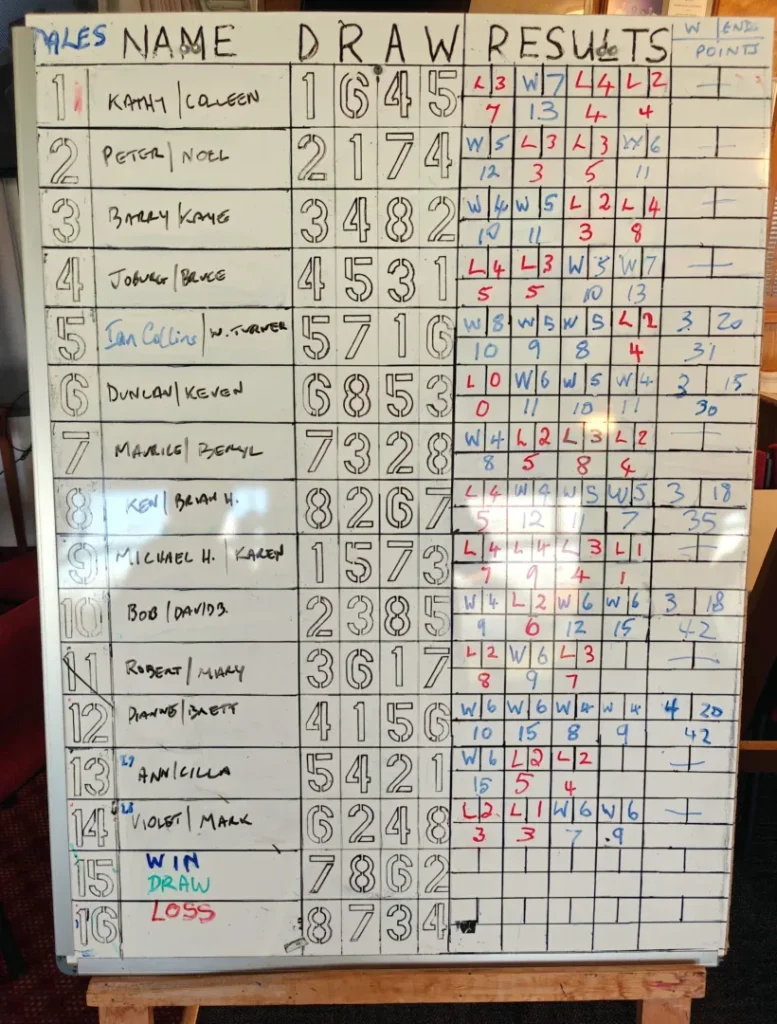 NAME DRAW RESULTS W END
POINTS
1 KATHY/COLLEEN 1 6 4 5 L 3 W 7 L 4 L 2
7 13 4 4
2 PETER/NOEL 2 1 7 4 W 5 L 3 L 3 W 6
12 3 5 11
3 BARRY/KAYE 3 4 8 2 W 4 W 5 L 2 L 4
10 11 3 8
4 4 5 3 1 L 4 L 3 W 5 W 7
5 5 10 13
5 Ian Collins/W. TURNER 5 7 1 6 W 8 W 5 W 5 L 2 3 20
10 9 8 4 31
6 DUNCAN/KEVEN 6 8 5 3 L 0 W 6 W 5 W 4 3 15
0 11 10 11 30
7 MAURICE/BERYL 7 3 2 8 W 4 L 2 L 3 L 2
8 5 8 4
8 KEN/BRIAN H. 8 2 6 7 L 4 W 4 W 5 W 5 3 18
5 12 11 7 35
9 MICHAEL H./KAREN 1 5 7 3 L 4 L 4 L 3 L 1
7 9 4 1
10 BOB/DAVID B. 2 3 8 5 W 4 L 2 W 6 W 6 3 18
9 6 12 15 42
11 ROBERT/MARY 3 6 1 7 L 2 W 6 L 3
8 9 7
12 DIANNE/BRETT 4 1 5 6 W 6 W 6 W 4 W 4 4 20
10 15 8 9 42
13 ANN/CILLA 5 4 2 1 W 6 L 2 L 2
15 5 4
14 VIOLET/MARK 6 2 4 8 L 2 L 1 W 6 W 6
3 3 7 9
15 WIN 7 8 6 2
DRAW
16 LOSS 8 7 3 4